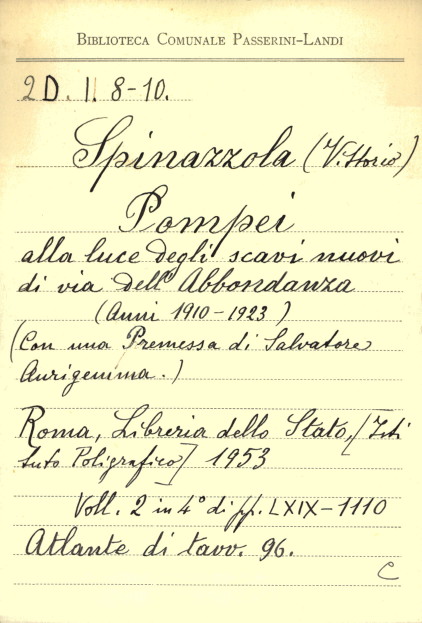 BIBLIOTECA COMUNALE PASSERINI-LANDI
2D. II. 8-10.
Spinazzola (Vittorio)
Pompei
alla luce degli scavi nuovi
di via dell'Abbondanza
(Anni 1910-1923)
(Con una Premessa di Salvatore
Aurigemma.)
Roma, Libreria dello Stato, [Isti
tuto Poligrafico] 1953
Voll. 2 in 4° di pp. LXIX-1110
Atlante di tavv. 96.
C